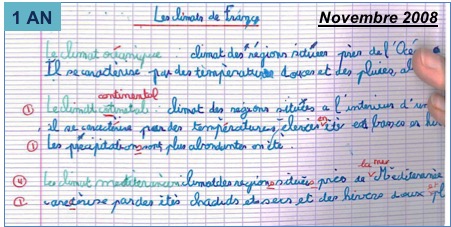 1 AN
Novembre 2008
Les climats de France
Le climat océanique : climat des régions situées près de l'Océ
Il se caractérise par des températures douces et des pluies, al
continental
① Le climat continetal : climat des regions situtés a l'interieur d'un
, il se caractérise par des températures élevées en été et basses en hi
① Les précipitations sont plus abondantes en été.
la mer
④ Le climat mediterranéen climat des regions situées près de Méditeranée
①. caractérise par des étés chauds et secs et des hivers doux et pl